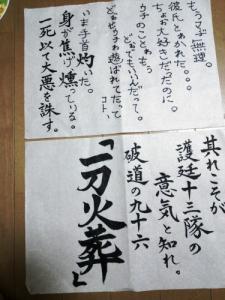 もうマヂ無理。
彼氏とゎかれた。。。
ちょぉ大好きだったのに。
ゥチのことゎもぅ
どぉでもぃぃんだって。
どぉせゥチゎ遊ばれてたってコト、
いま手首灼いた。
身が焦げ燻っている。
一死以て大悪を誅す。
其れこそが
護廷十三隊の
意気と知れ。
破道の九十六
「一刀火葬」